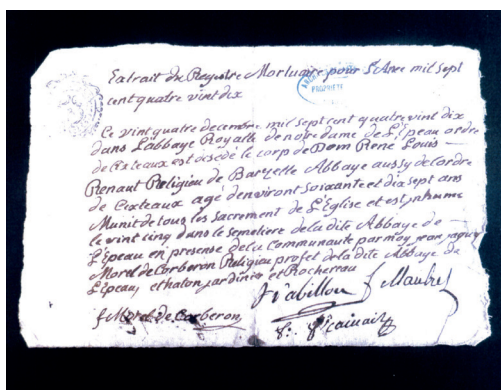 Extrait du Registre Mortuaire pour L'Anee mil sept
cent quatre vint dix
PROPRIETE
Ce vint quatre decembre mil sept cent quatre vint dix
dans L'abbaye Royalle de notre dame de L'Epeau ordre
de Citeaux est décedé le corp de Dom René Louis
Renaut Religieu de Barzelle Abbaye aussy de Lordre
de Citeaux agé d'environt soixante et dix sept ans
Munit de tous les sacrement de L'Eglise et est inhumé
le vint cinq dans le semetiere de la dite Abbaye de
L'Epeau en presense de la Communauté par moy jean jaque
Morel de Corberon Religieu profet de la dite Abbaye de
L'Epeau, et haton jardinier et Rochereau
f Maubre
f Morel de Corberon